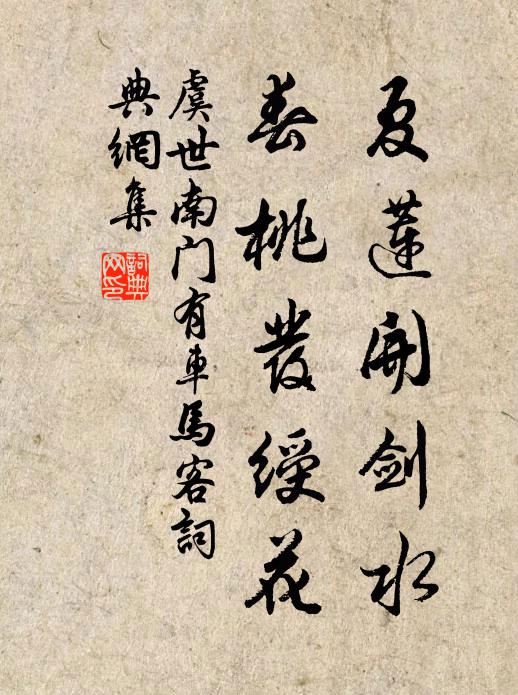 夏蓮開劍水
春桃發綬花
虞世南門有車馬客詞
典網集
詞典網印